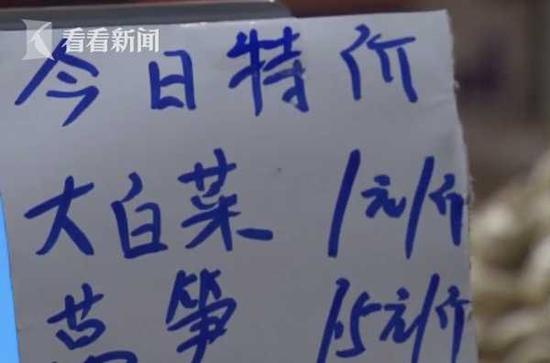 看看新闻
今日特价
大白菜 1元/斤
莴笋 1.5元/斤